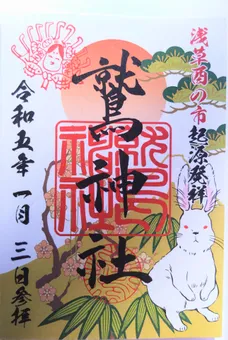 浅草酉の市起源発祥
鷲神社
令和五年一月三日参拝